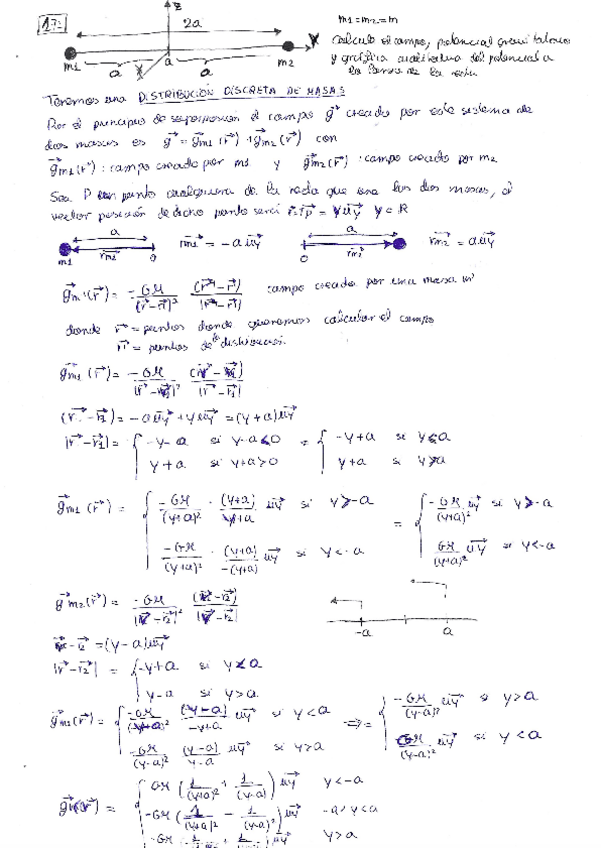 1.7:
z
2a
m1 = m2 = m
Calcula el campo, potencial gravitatorio
y gráfica cualitativa del potencial a
lo largo de la recta
m1 a a a m2 y
x
Tenemos una DISTRIBUCIÓN DISCRETA DE MASAS
Por el principio de superposición el campo g⃗ creado por este sistema de
dos masas es g⃗ = g⃗m1 (r⃗) + g⃗m2 (r⃗) con
g⃗m1(r⃗): campo creado por m1 y g⃗m2(r⃗): campo creado por m2
Sea P un punto cualquiera de la recta que una las dos masas, el
vector posición de dicho punto será r⃗=r⃗p = y u⃗y y ∈ R
a
r⃗m1 = -a u⃗y
a
r⃗m2 = a u⃗y
m1 r⃗m1 0
0 r⃗m2
campo creado por una masa m
donde r⃗ = puntos donde queremos calcular el campo
= puntos de la distribución.
g⃗m1 (r⃗) = -GM/|r⃗-r⃗1|² (r⃗-r⃗1)/|r⃗-r⃗1|
(r⃗-r⃗1) = -a u⃗y + y u⃗y = (y+a) u⃗y
|r⃗-r⃗1| = { -y-a si y-a≤0 = { -y+a si y≤a
y+a si y+a>0 y+a si y>a
g⃗m1 (r⃗) = { -GM/(y+a)² · (y+a)/y+a u⃗y si y>-a = { -GM/(y+a)² u⃗y si y>-a
-GM/(y+a)² · (y+a)/-(y+a) u⃗y si y<-a GM/(y+a)² u⃗y si y<-a
g⃗m2(r⃗) = -GM/|r⃗-r⃗2|² (r⃗-r⃗2)/|r⃗-r⃗2|
-a a
r⃗-r⃗2 = (y-a) u⃗y
|r⃗-r⃗2| = { -y+a si y<a
y-a si y>a
g⃗m2(r⃗) = { -GM/(y-a)² (y-a)/-y+a u⃗y si y<a => = { -GM/(y-a)² u⃗y si y>a
-GM/(y-a)² (y-a)/y-a u⃗y si y>a GM/(y-a)² u⃗y si y<a
g⃗(r⃗) = { GM ( 1/(y+a)² + 1/(y-a) ) u⃗y y<-a
-GM ( 1/(y+a)² - 1/(y-a)² ) u⃗y -a<y<a
y>a